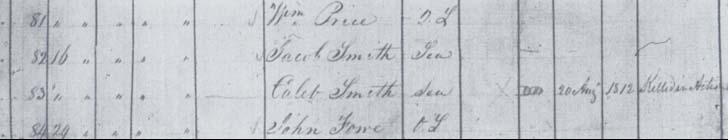 81 " " " " Wm Price O.L
82 16 " " " " Jacob Smith Sea —
83 " " " " " Caleb Smith Sea X DD 20 Aug 1812 Killed in Action
84 24 " " " " John Lowe O.L